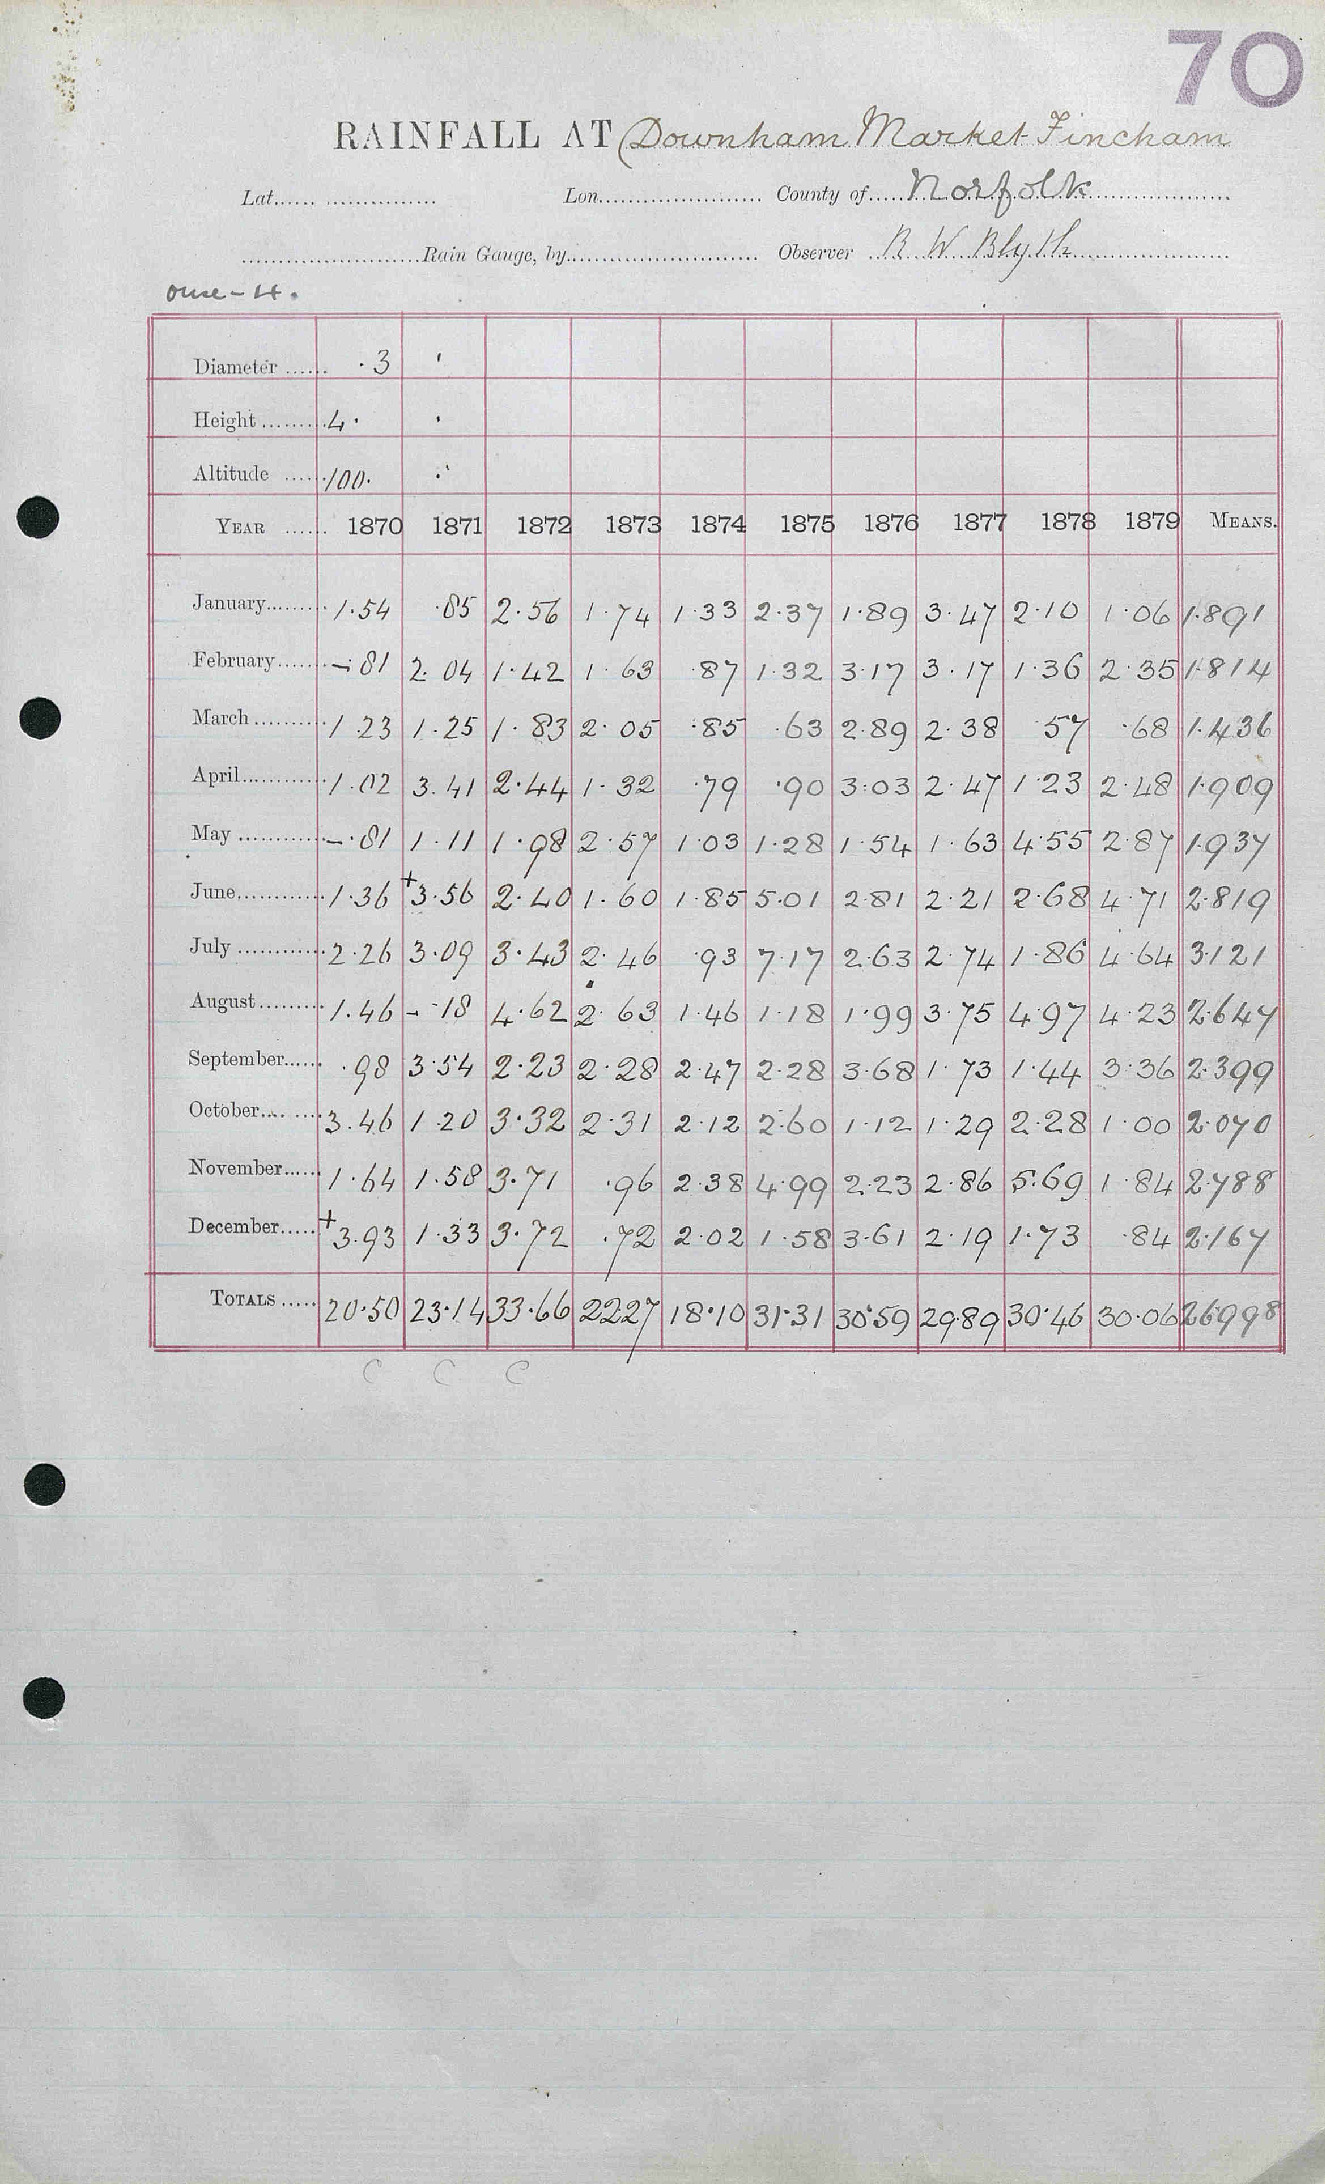 70
RAINFALL AT (Downham Market Fincham
Lat. Lon. County of Norfolk
Rain Gauge, by Observer R W Blyth
Ouse - 4.
Diameter ·3 '
Height 4· ·
Altitude 100.
YEAR 1870 1871 1872 1873 1874 1875 1876 1877 1878 1879 MEANS.
January 1·54 ·85 2·56 1·74 1·33 2·37 1·89 3·47 2·10 1·06 1·891
February -·81 2·04 1·42 1·63 ·87 1·32 3·17 3·17 1·36 2·35 1·814
March 1·23 1·25 1·83 2·05 ·85 ·63 2·89 2·38 57 ·68 1·436
April 1·02 3·41 2·44 1·32 ·79 ·90 3·03 2·47 1·23 2·48 1·909
May -·81 1·11 1·98 2·57 1·03 1·28 1·54 1·63 4·55 2·87 1·937
June 1·36 +3·56 2·40 1·60 1·85 5·01 2·81 2·21 2·68 4·71 2·819
July 2·26 3·09 3·43 2·46 ·93 7·17 2·63 2·74 1·86 4·64 3·121
August 1·46 -·18 4·62 2·63 1·46 1·18 1·99 3·75 4·97 4·23 2·647
September ·98 3·54 2·23 2·28 2·47 2·28 3·68 1·73 1·44 3·36 2·399
October 3·46 1·20 3·32 2·31 2·12 2·60 1·12 1·29 2·28 1·00 2·070
November 1·64 1·58 3·71 ·96 2·38 4·99 2·23 2·86 5·69 1·84 2·788
December +3·93 1·33 3·72 ·72 2·02 1·58 3·61 2·19 1·73 ·84 2·167
TOTALS 20·50 23·14 33·66 2227 18·10 31·31 30·59 29·89 30·46 30·06 26998
C C C